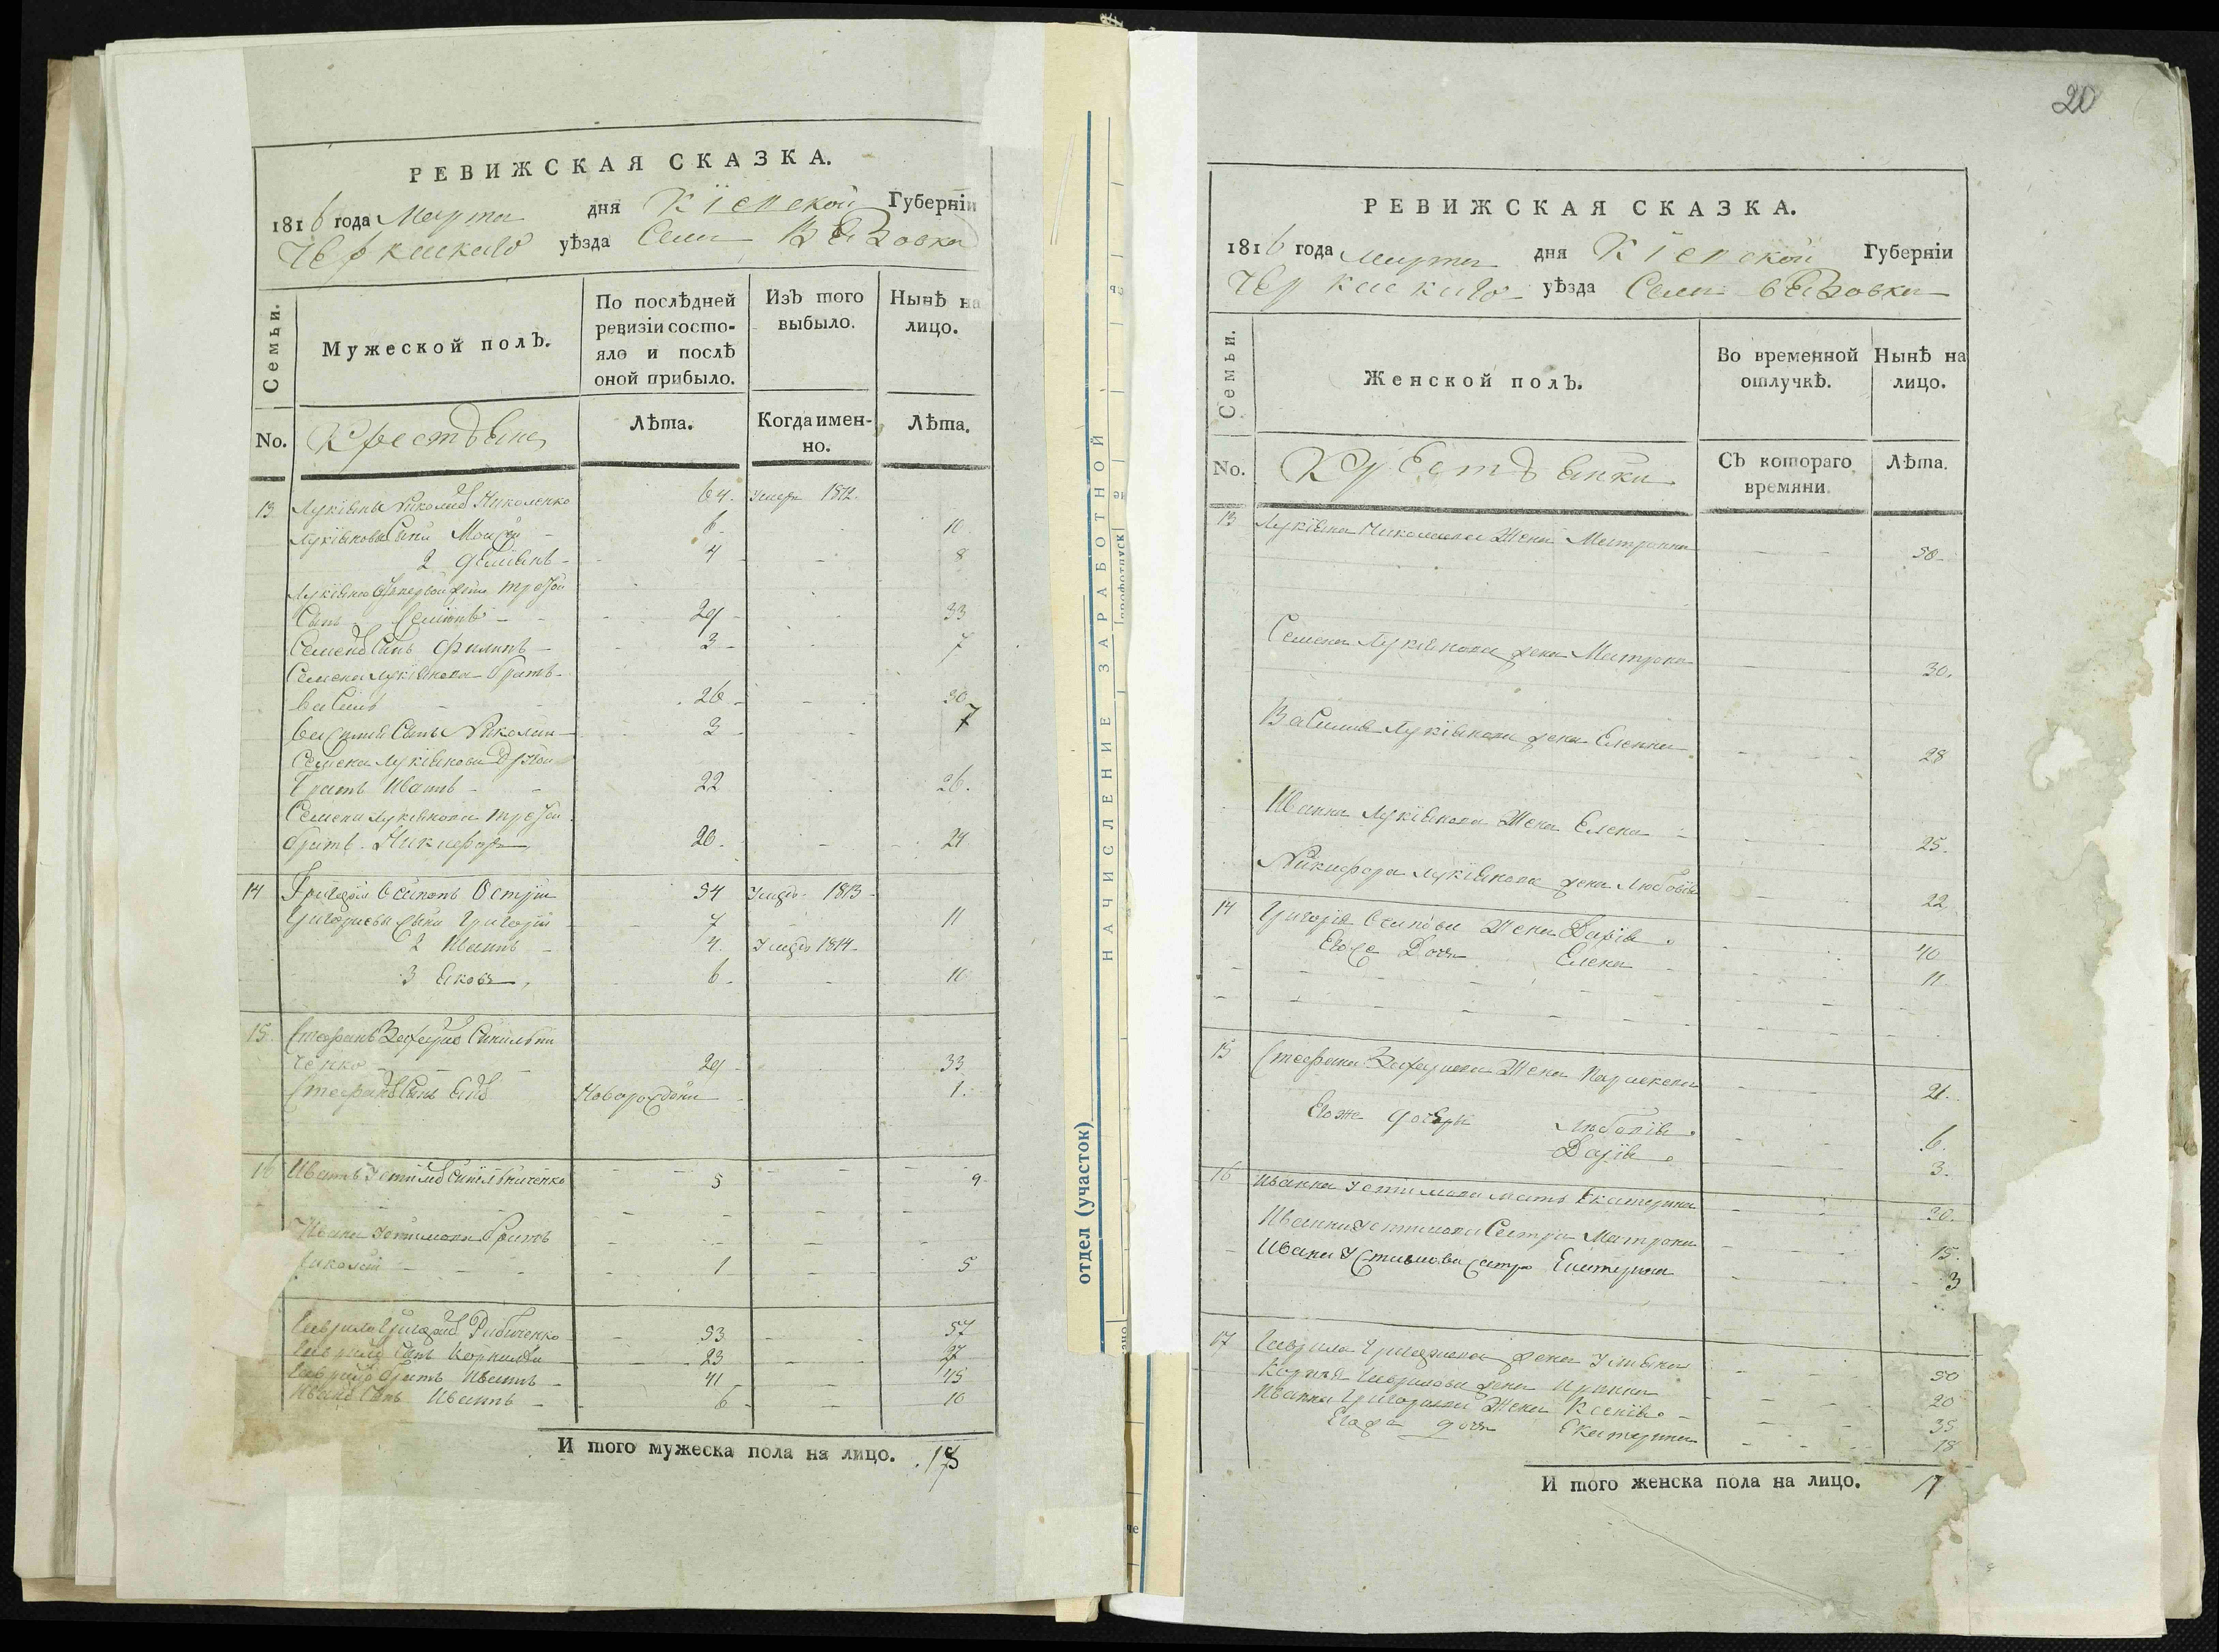 РЕВИЖСКАЯ СКАЗКА.
1816 года Марта дня Кіевской Губерніи
Черкаскаго уѣзда Села Вязовка
Семьи.
Мужеской полъ.
По послѣдней ревизіи состо-
яло и послѣ
оной прибыло.
Изъ того
выбыло.
Нынѣ на
лицо.
No.
Крестьяне
Лѣта.
Когда имен-
но.
Лѣта.
13 Николаев Николенко 64. умре 1812.
Сыни Моисей 6 10
2 Демянъ 4 8
Сынъ Семионъ 29 33
Семена Сынъ Филипъ 3 7
Семена Лукіянова братъ
Василь 26 30
Василия Сынъ Николай 3 7
Семена Лукіянова Другой
Братъ Иванъ 22 26.
Семена Лукіянова третей
братъ Никифоръ 20. 24
14 Григорій Осиповъ 54 умре 1813
Григориевы сыни Григорій 7 11
2 Иванъ 4. умре 1814.
3 Яковъ 6 10
15 Стефанъ Захарьевъ Синильни
ченко 29 33
Стефана Сынъ Новорожденъ 1.
16 Иванъ Устимовъ Синильниченко 5 9
Ивана Устимова братъ
Николай 1 5
Гаврило Григорьевъ Рибиченко 53 57
Гаврила сынъ Корнилій 23 27
Гаврила братъ Иванъ 41 45
Ивана Сынъ Иванъ 6 10
И того мужеска пола на лицо. 18
20
РЕВИЖСКАЯ СКАЗКА.
1816 года Марта дня Кіевской Губерніи
Черкаскаго уѣзда Села Вязовки
Семьи.
Женской полъ.
Во временной
отлучкѣ.
Нынѣ на
лицо.
No.
Крестьянки
Съ котораго
времяни.
Лѣта.
13 Лукіяна Николаева Жена Матрона 50
Семена Лукіянова жена Матрона 30.
Василия Лукіянова жена Еленна 28
Иванна Лукіянова Жена Елена 25.
Никифора Лукіянова жена Любовія 22
14 Григорія Осипова Жена Дарія 40
Егоже Дочь Елена 11
15 Стефана Захариева Жена Параскева 21.
Егоже дочерѣ Любовія 6.
Дарія 3.
16 Иванна Устимова мать Екатерина 30.
Иванна Устимова Сестра Матрона 15.
Ивана Устимова Сестра Екатерина 3
17 Гаврила Григориева жена Улияна 50
Корнѣя Гаврилова жена Иринна 20
Иванна Григориева Жена Ксенія 35
Егоже дочь Екатерина 18
И того женска пола на лицо. 17
НАЧИСЛЕНИЕ ЗАРАБОТНОЙ
отдел (участок)